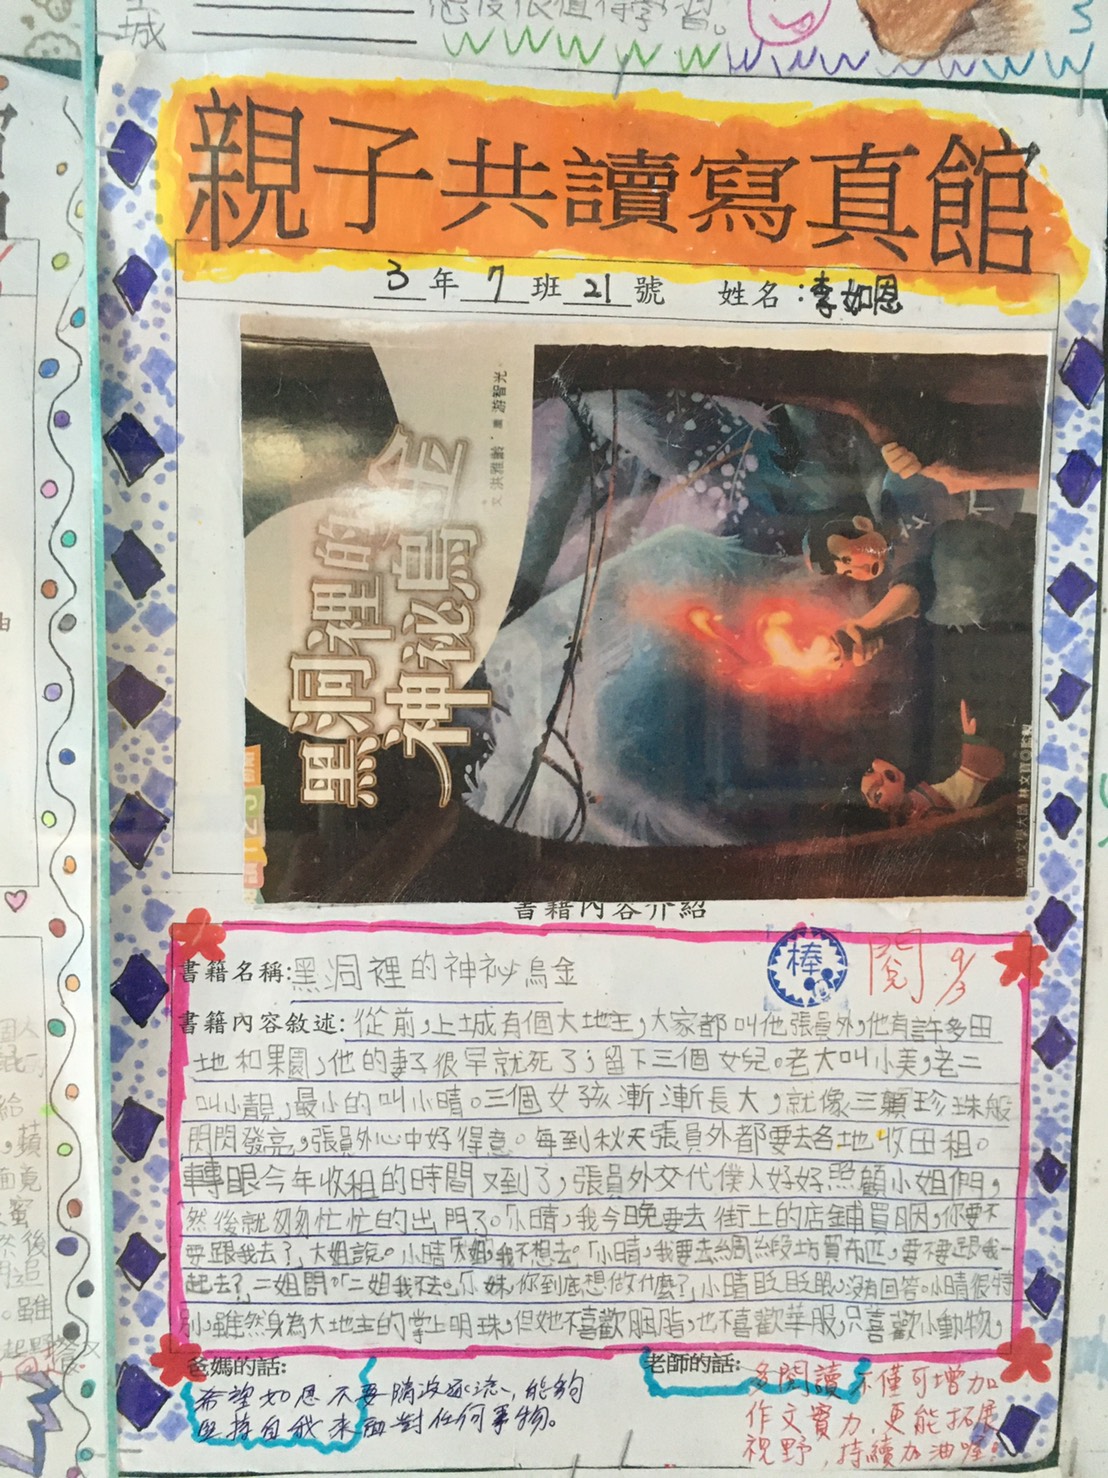 城
態度很值得學習。
親子共讀寫真館
3年7班21號 姓名:李如恩
黑洞裡的
神祕烏金
文 洪雅齡・圖 游智光
書籍內容介紹
棒
閱 9/3
書籍名稱:黑洞裡的神祕烏金
書籍內容敘述:從前,上城有個大地主,大家都叫他張員外,他有許多田
地和果園,他的妻子很早就死了,留下三個女兒。老大叫小美,老二
叫小靚,最小的叫小晴。三個女孩漸漸長大,就像三顆珍珠般
閃閃發亮,張員外心中好得意。每到秋天張員外都要去各地收田租。
轉眼今年收租的時間又到了,張員外交代僕人好好照顧小姐們,
然後就匆匆忙忙的出門了。「小晴,我今晚要去街上的店鋪買胭,你要不
要跟我去?」大姐說。小晴「大姐我不想去。「小晴,我要去綢緞坊買布匹,要不要跟我一
起去?」二姐問。「二姐我不去。「小妹,你到底想做什麼?」小晴眨眨眼,沒有回答。小晴很特
別,雖然身為大地主的掌上明珠,但她不喜歡胭脂,也不喜歡華服,只喜歡小動物,
爸媽的話:
希望如恩不要隨波逐流,能夠
堅持自我來面對任何事物。
老師的話:
多閱讀不僅可增加
作文實力,更能拓展
視野,持續加油喔!